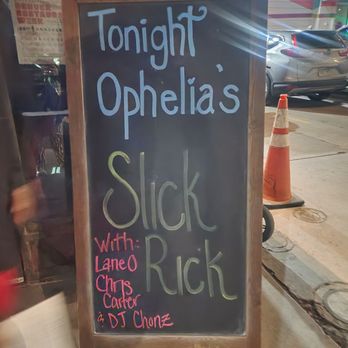 Tonight
Ophelia's
Slick
Rick
With:
Lane O
Chris
Carter
& DJ Chonz